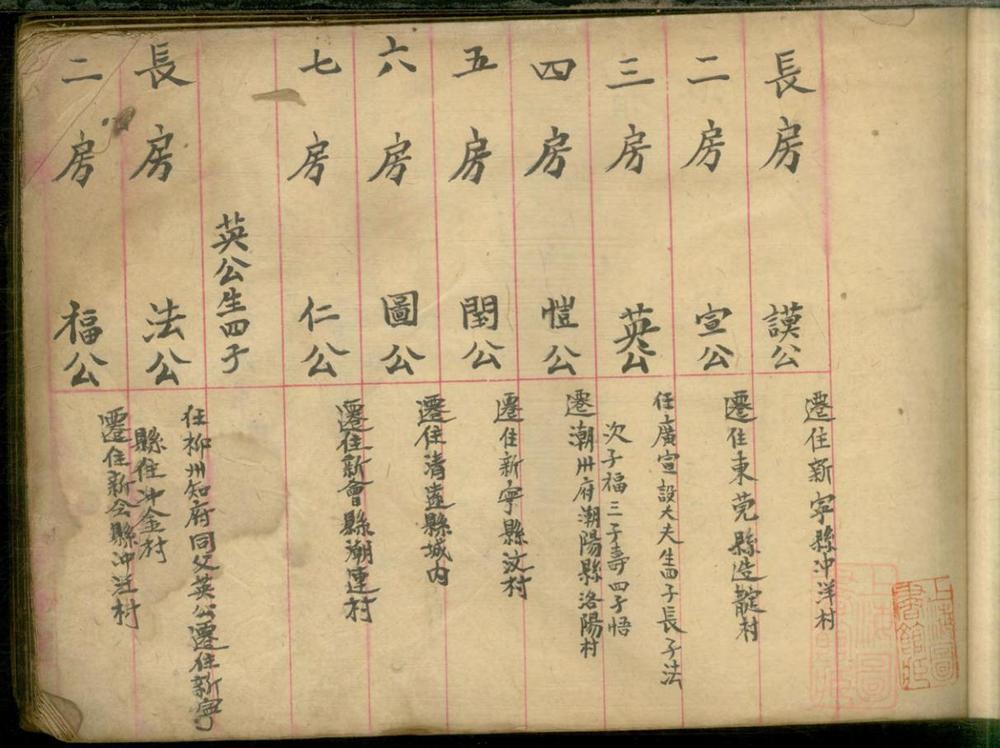 長房 謨公 遷住新寧縣沖洋村
二房 宣公 遷住東莞縣造靛村
三房 英公 任廣宣設大夫生四子長子法
次子福三子壽四子悟
四房 愷公 遷潮州府潮陽縣洛陽村
五房 閏公 遷住新寧縣汶村
六房 圖公 遷住清遠縣城內
七房 仁公 遷住新會縣潮連村
英公生四子
長房 法公 任柳州知府同父英公遷住新寧
縣住沖金村
二房 福公 遷住新会縣沖泩村
上海圖
書館藏